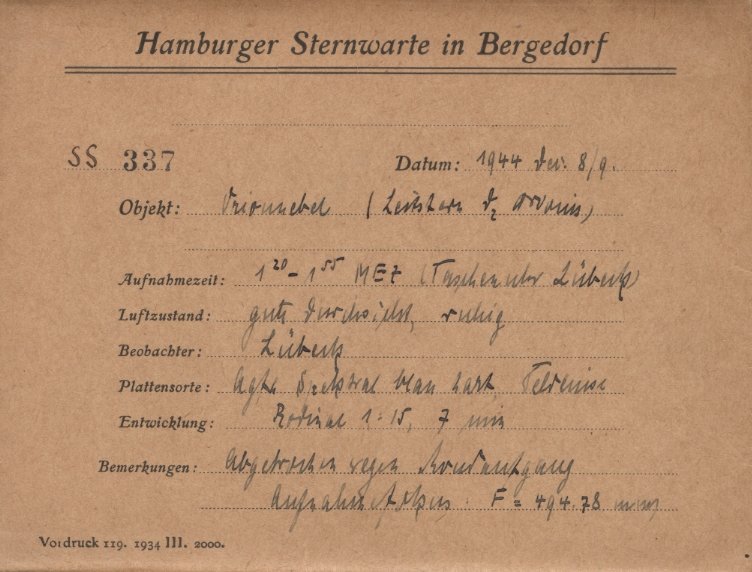 Hamburger Sternwarte in Bergedorf
SS 337 Datum: 1944 Dez. 8/9.
Objekt: Orionnebel (Leitstern ϑ₂ Orionis)
Aufnahmezeit: 1²⁰ – 1⁵⁵ MEZ (Taschenuhr Lübeck)
Luftzustand: gute Durchsicht, ruhig
Beobachter: Lübeck
Plattensorte: Agfa Spektral blau hart
Entwicklung: Rodinal 1:15, 7 min
Bemerkungen: Abgebrochen wegen Mondaufgang
Aufnahmefokus: F = 494.78 mm
Vordruck 119. 1934 III. 2000.